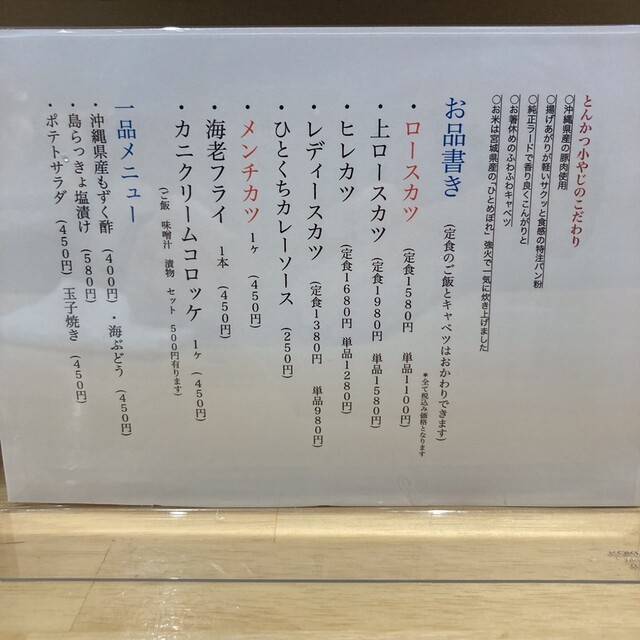 とんかつ小やじのこだわり
○沖縄県産の豚肉使用
○揚げあがりが軽いサクッと食感の特注パン粉
○純正ラードで香り良くこんがりと
○お箸休めのふわふわキャベツ
○お米は宮城県産の「ひとめぼれ」強火で一気に炊き上げました
お品書き (定食のご飯とキャベツはおかわりできます)
*全て税込み価格となります
・ロースカツ (定食1580円 単品1100円)
・上ロースカツ (定食1980円 単品1580円)
・ヒレカツ (定食1680円 単品1280円)
・レディースカツ (定食1380円 単品980円)
・ひとくちカレーソース (250円)
・メンチカツ 1ヶ (450円)
・海老フライ 1本 (450円)
・カニクリームコロッケ 1ヶ (450円)
(ご飯 味噌汁 漬物 セット 500円有ります)
一品メニュー
・沖縄県産もずく酢 (400円) ・海ぶどう (450円)
・島らっきょ塩漬け (580円)
・ポテトサラダ (450円) 玉子焼き (450円)